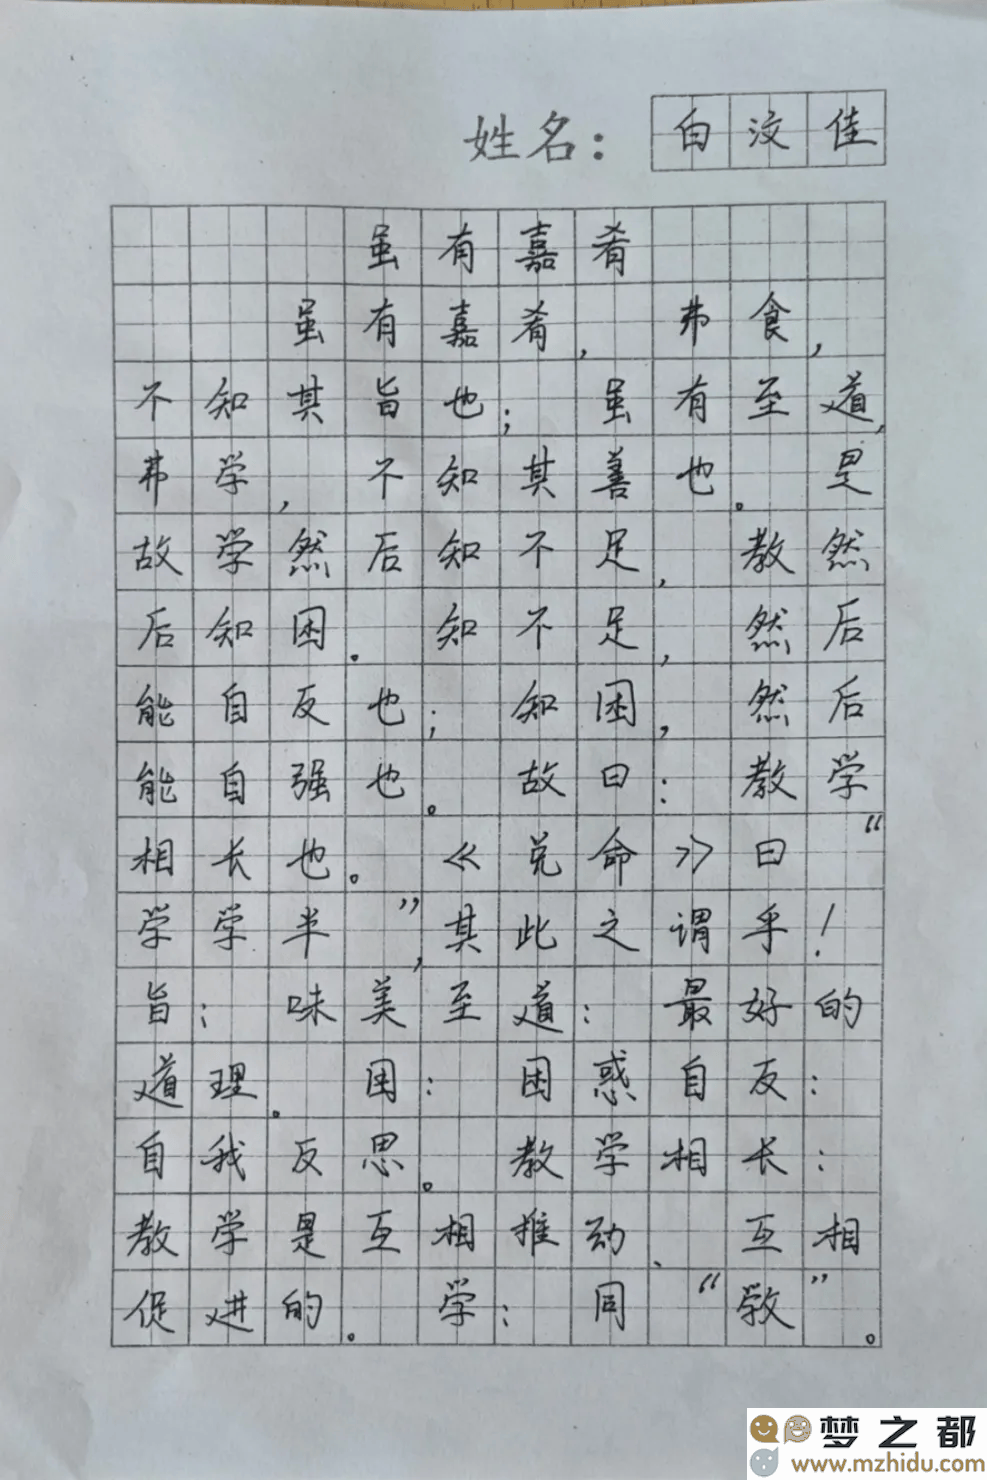 姓名：白汶佳
虽有嘉肴
虽有嘉肴，弗食，
不知其旨也；虽有至道，
弗学，不知其善也。是
故学然后知不足，教然
后知困。知不足，然后
能自反也；知困，然后
能自强也。故曰：教学
相长也。《兑命》曰“
学学半”，其此之谓乎！
旨：味美至道：最好的
道理。困：困惑自反：
自我反思。教学相长：
教学是互相推动、互相
促进的。学：同“敩”。
梦之都
www.mzhidu.com